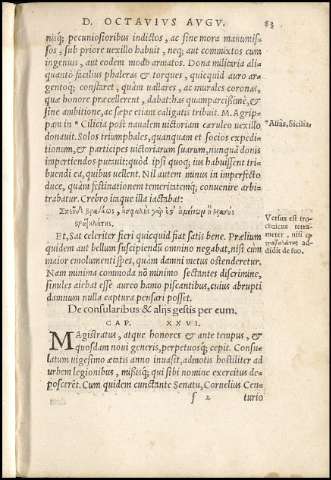 D. OCTAVIVS AVGV. 83
nisq; pecuniosioribus indictos, ac sine mora manumis-
sos, sub priore uexillo habuit, neq; aut commixtos cum
ingenuis, aut eodem modo armatos. Dona militaria ali-
quanto facilius phaleras & torques, quicquid auro ar-
gentoq; constaret, quàm uallares, ac murales coronas,
quæ honore præcellerent, dabat: has quamparcissimè, &
sine ambitione, ac sæpe etiam caligatis tribuit. M. Agrip-
pam in Cilicia post naualem uictoriam cæruleo uexillo
donauit. Solos triumphales, quanquam et socios expedi-
tionum, & participes uictoriarum suarum, nunquã donis
impertiendos putauit: quòd ipsi quoq; ius habuissent tribu-
uendi ea, quibus uellent. Nil autem minus in imperfecto
duce, quàm festinationem temeritatemq; conuenire arbi-
trabatur. Crebro itaque illa iactabat:
Σπεῦδε βραδέως, ἀσφαλὴς γάρ ἐστ' ἀμείνων ἢ θρασὺς
στρατηλάτης.
Et, Sat celeriter fieri quicquid fiat satis bene. Prælium
quidem aut bellum suscipiendũ omnino negabat, nisi cùm
maior emolumenti spes, quàm damni metus ostenderetur.
Nam minima commoda nõ minimo sectantes discrimine,
similes aiebat esse aureo hamo piscantibus, cuius abrupti
damnum nulla captura pensari posset.
De consularibus & alijs gestis per eum.
CAP. XXVI.
MAgistratus, atque honores & ante tempus, &
quosdam noui generis, perpetuosq; cepit. Consu-
latum uigesimo ætatis anno inuasit, admotis hostiliter ad
urbem legionibus, missisq; qui sibi nomine exercitus de-
poscerēt. Cum quidem cunctante Senatu, Cornelius Cen-
f 2 turio
Sicilia
Versus est tro-
chaicus tetra-
meter, nisi
στρατηλάτης ad-
didit de suo.